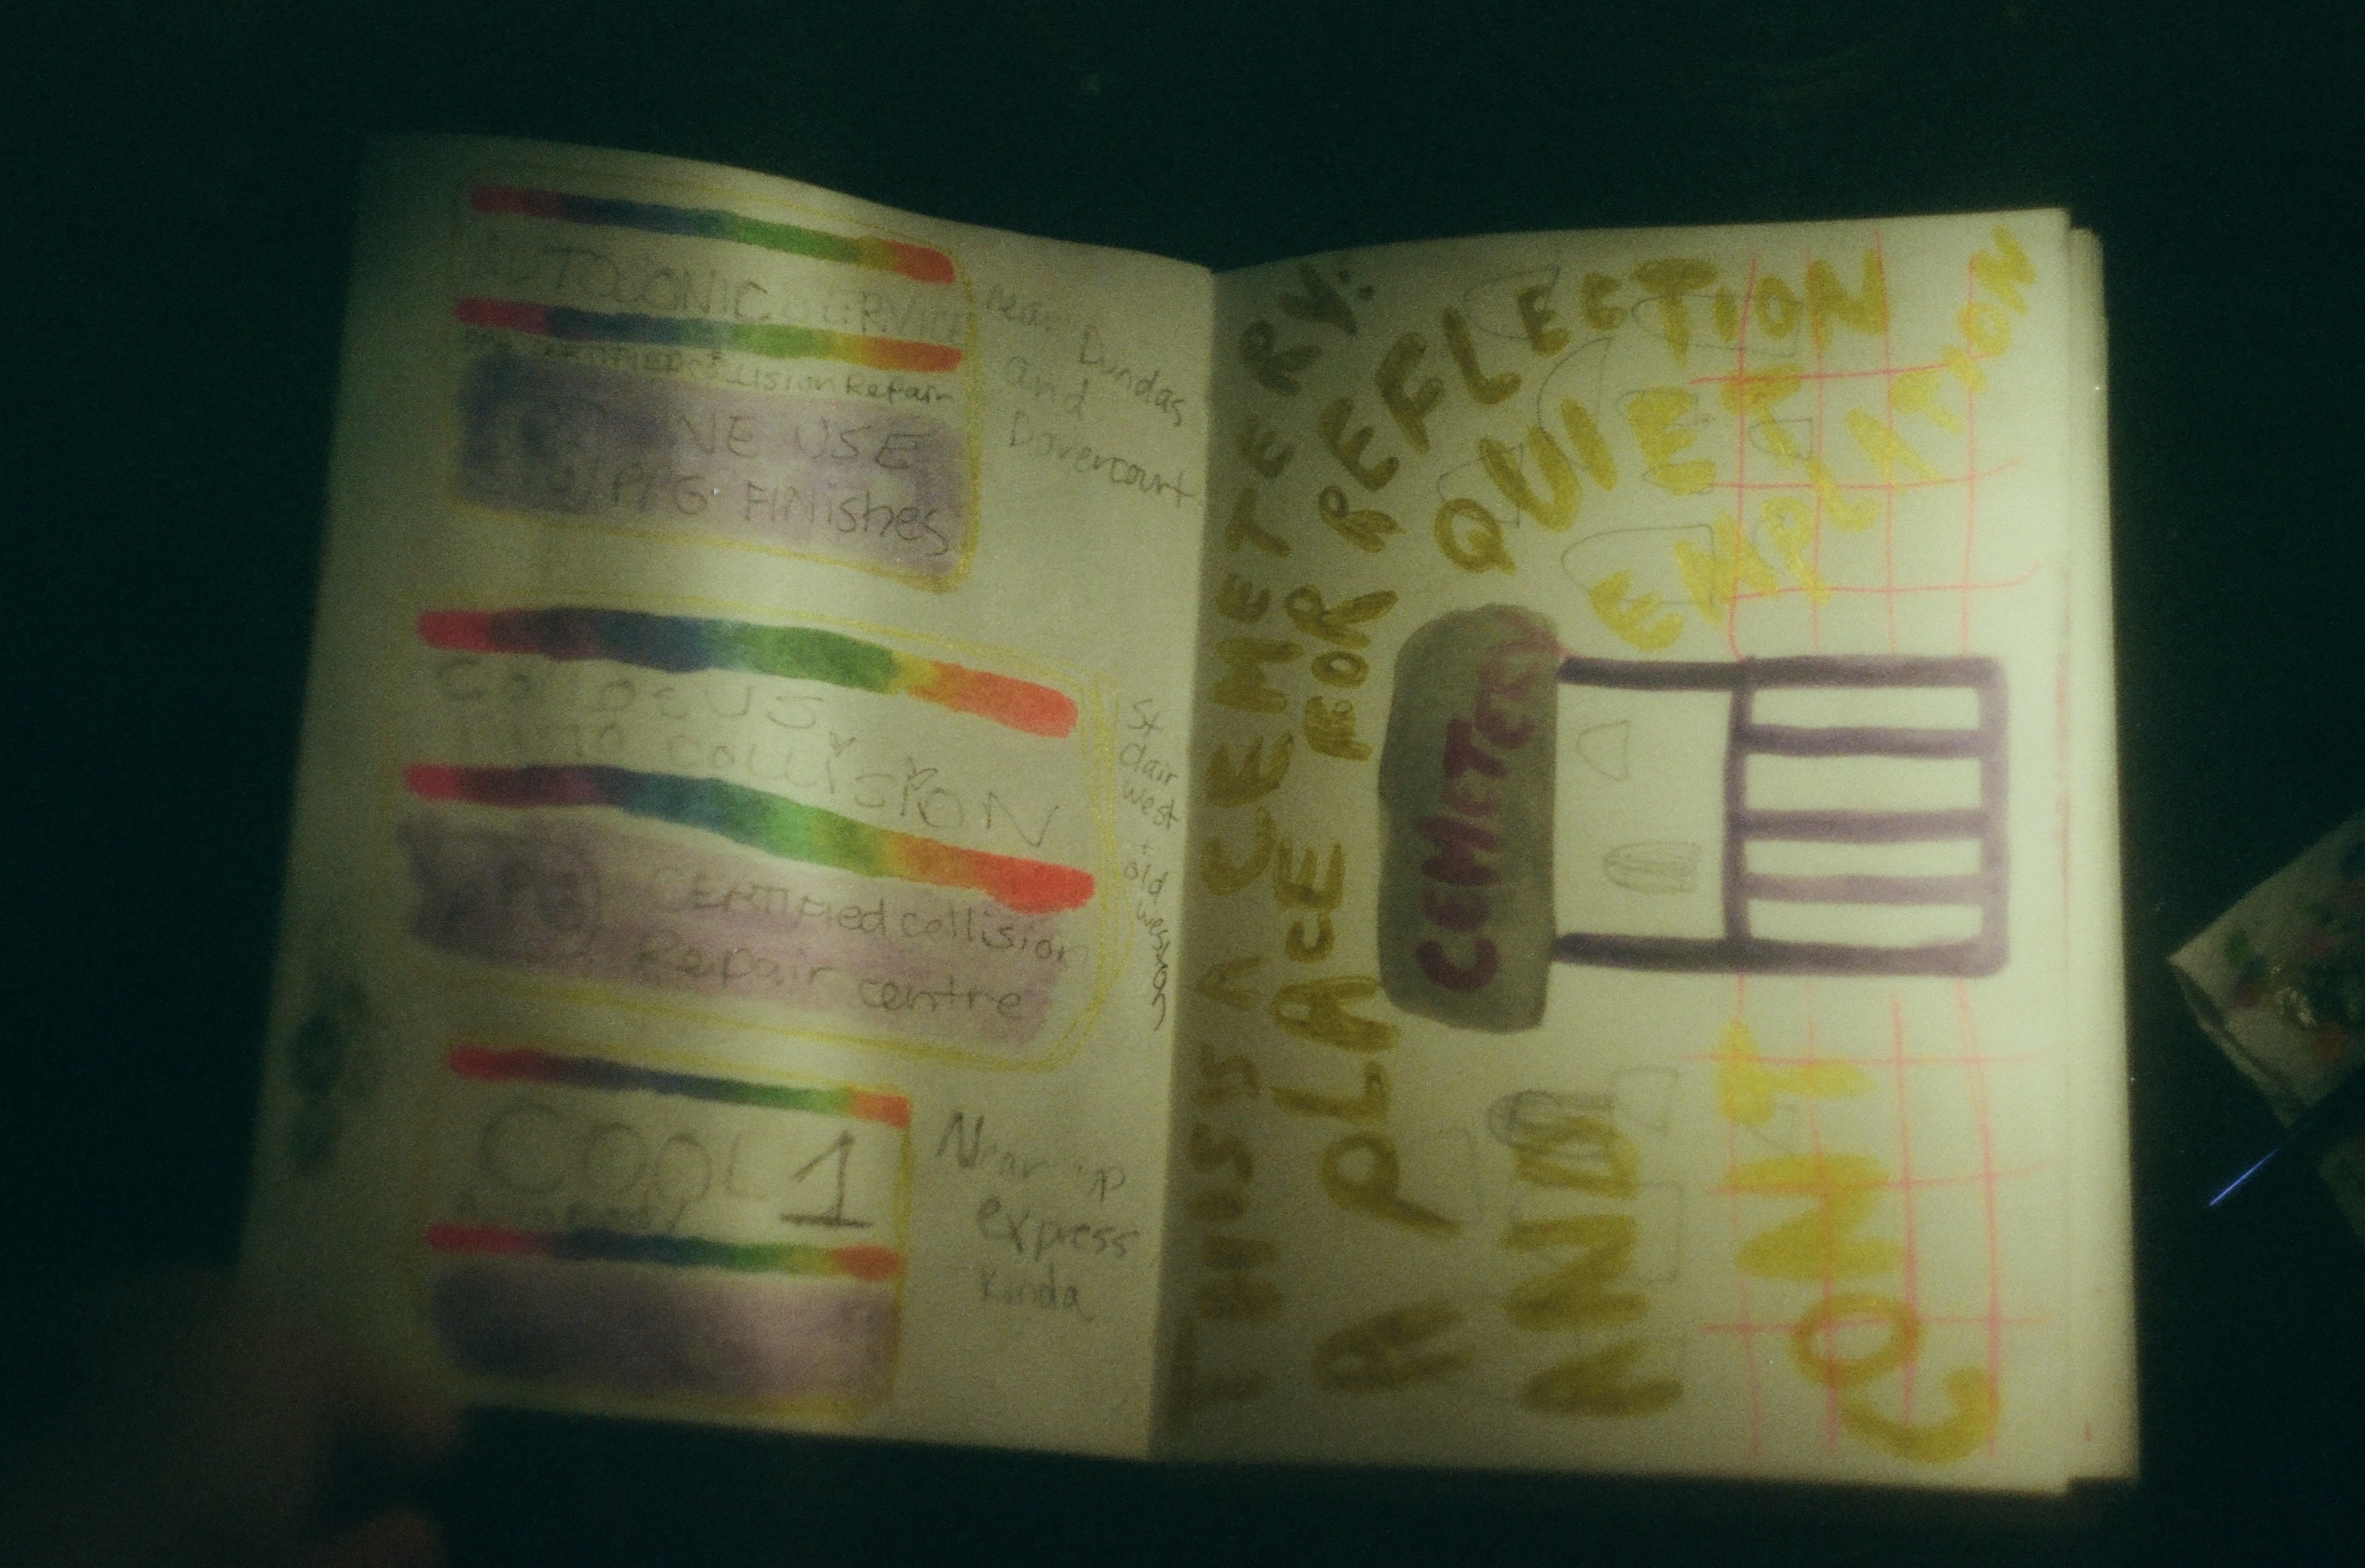 AUTOSONIC SERVICE
CERTIFIED collision Repair
WE USE
PPG FINishes
near
Dundas
and
Dovercourt
COLLOCUS
COLLISION
PPG CERTIFIed collision
Repair centre
St
Clair
West
+
old
weston
COOL 1
Autobody
Near up
express
kinda
THIS IS A CEMETERY:
A PLACE FOR REFLECTION
AND QUIET
CONTEMPLATION
CEMETERY